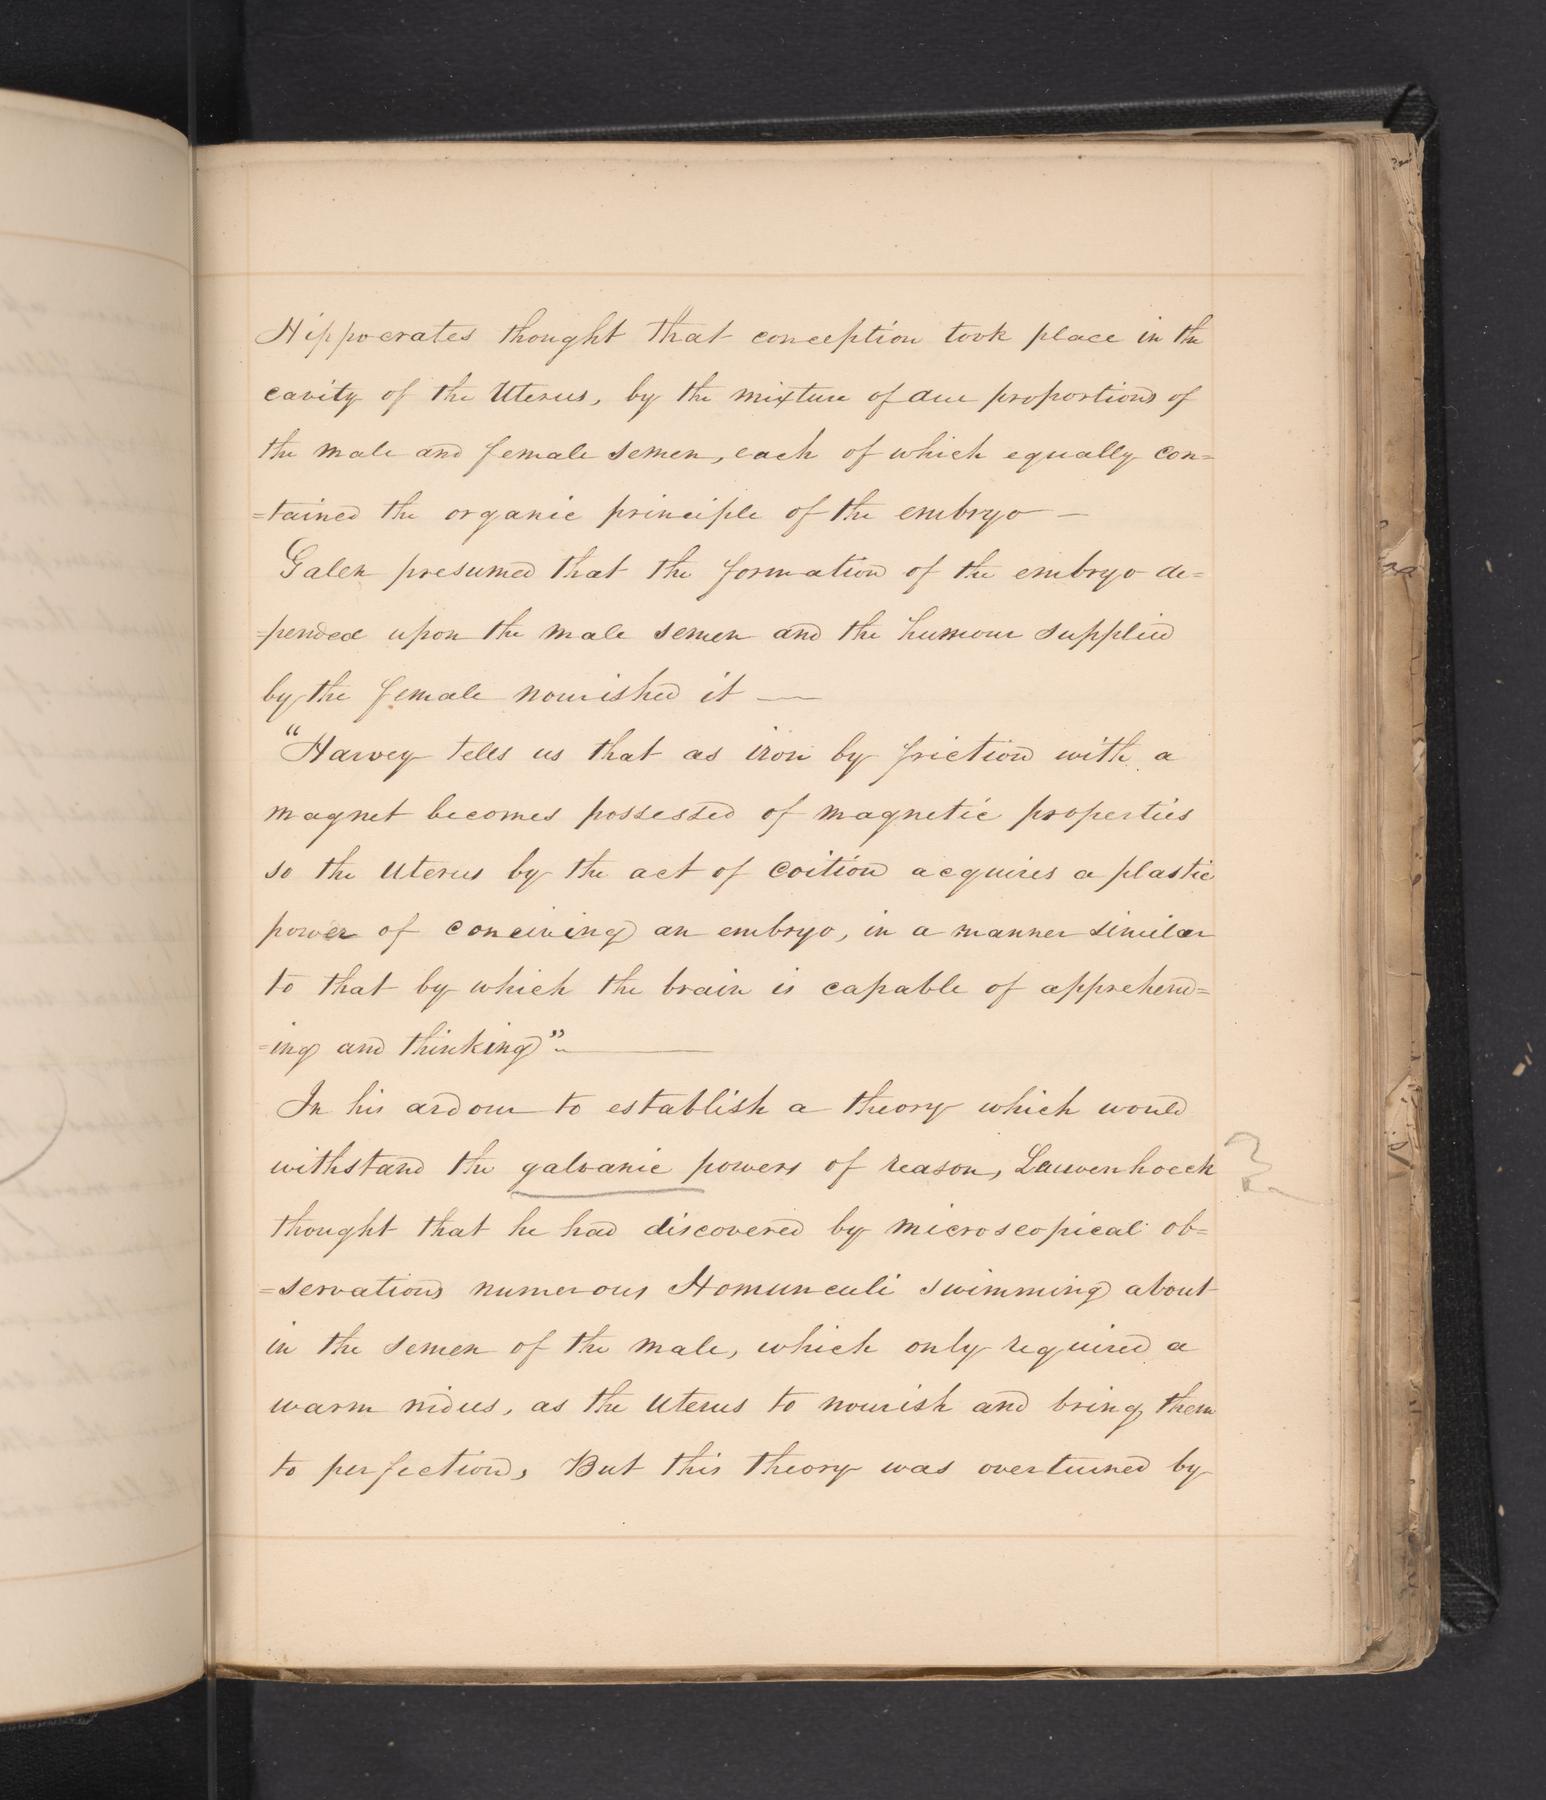 Hippocrates thought that conception took place in the
cavity of the Uterus, by the mixture of due proportions of
the male and female semen, each of which equally con=
=tained the organic principle of the embryo —
Galen presumed that the formation of the embryo de=
=pended upon the male semen and the humour supplied
by the female nourished it —
"Harvey tells us that as iron by friction with a
magnet becomes possessed of magnetic properties
so the Uterus by the act of Coition acquires a plastic
power of conceiving an embryo, in a manner similar
to that by which the brain is capable of apprehend=
=ing and thinking" —
In his ardour to establish a theory which would
withstand the galvanic powers of reason, Lauwenhoeck ?
thought that he had discovered by microscopical ob=
=servations numerous Homunculi swimming about
in the semen of the male, which only required a
warm nidus, as the Uterus to nourish and bring them
to perfection, But this theory was overturned by